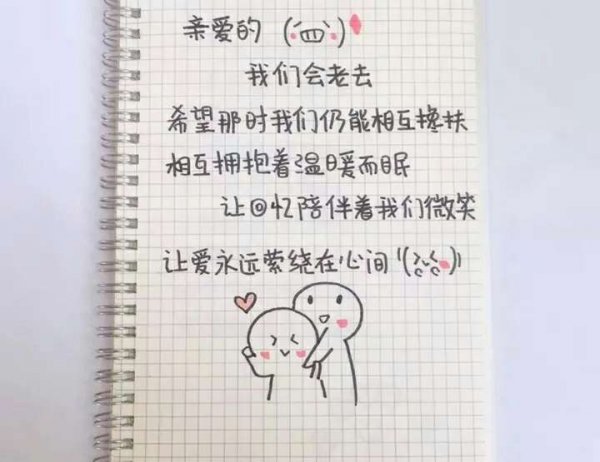 亲爱的
我们会老去
希望那时我们仍能相互搀扶
相互拥抱着温暖而眠
让回忆陪伴着我们微笑
让爱永远萦绕在心间